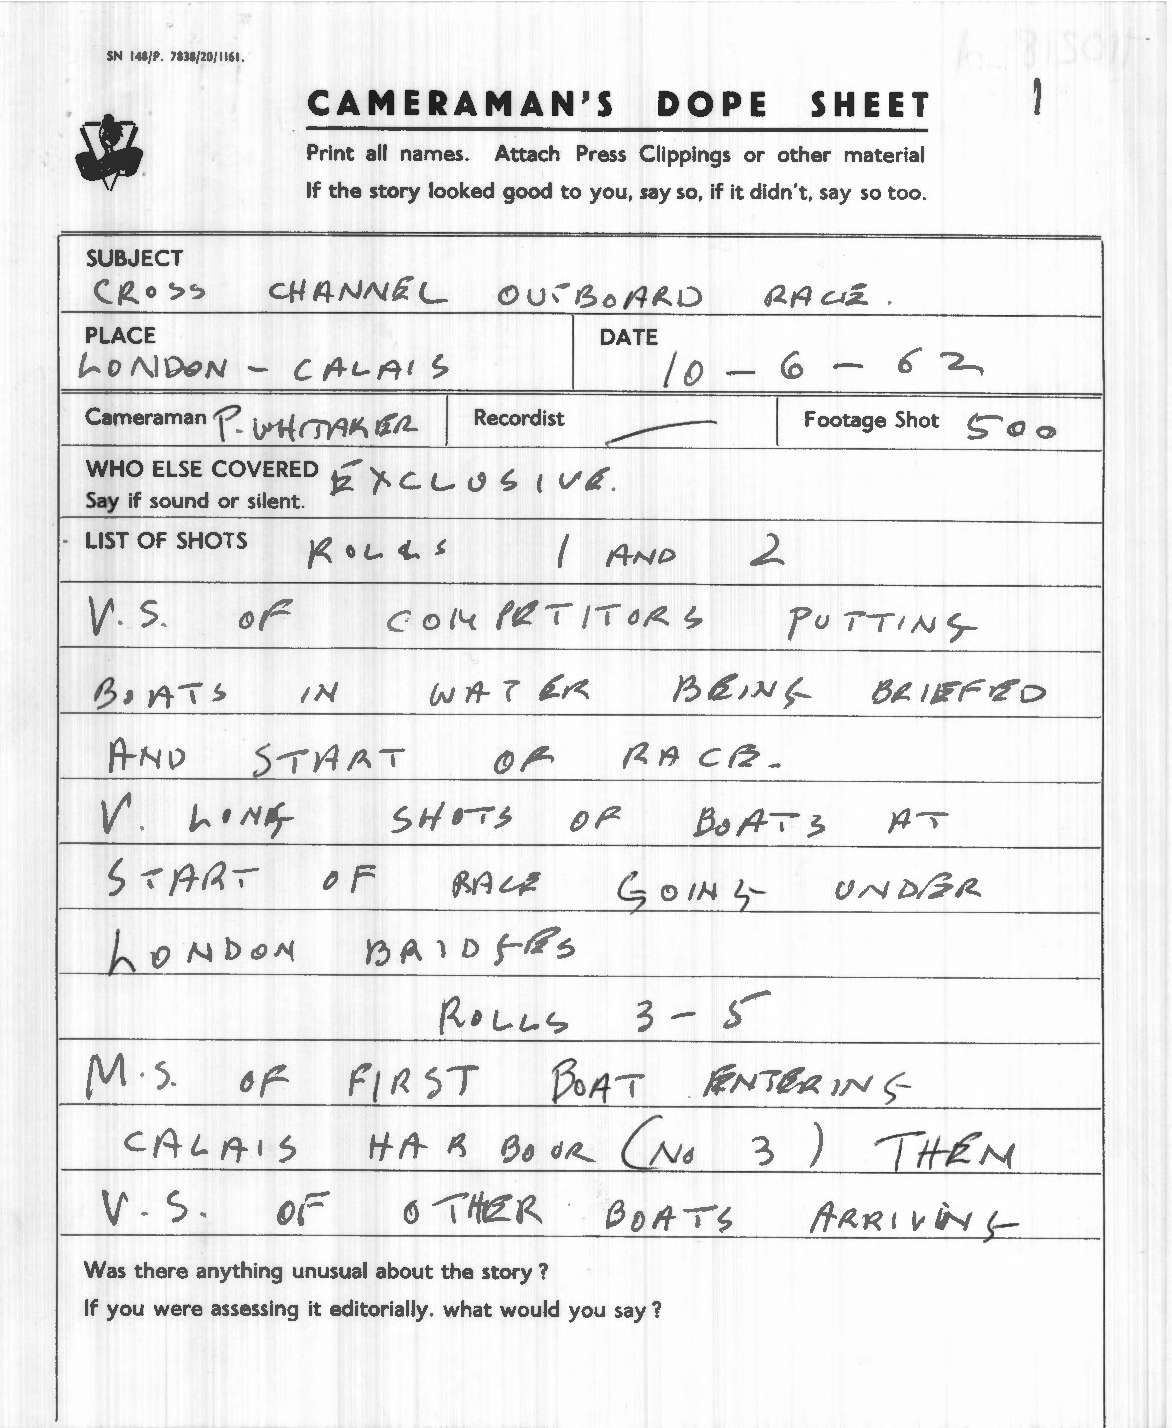 SN 148/P. 7838/20/1161.
CAMERAMAN'S DOPE SHEET 1
Print all names. Attach Press Clippings or other material
If the story looked good to you, say so, if it didn't, say so too.
SUBJECT
CROSS CHANNEL OUTBOARD RACE.
PLACE DATE
LONDON - CALAIS 10 - 6 - 62
Cameraman P. WHITAKER Recordist — Footage Shot 500
WHO ELSE COVERED EXCLUSIVE.
Say if sound or silent.
LIST OF SHOTS ROLLS 1 AND 2
V.S. OF COMPETITORS PUTTING
BOATS IN WATER BEING BRIEFED
AND START OF RACE.
V. LONG SHOTS OF BOATS AT
START OF RACE GOING UNDER
LONDON BRIDGES
ROLLS 3 - 5
M.S. OF FIRST BOAT ENTERING
CALAIS HARBOUR (No 3) THEN
V.S. OF OTHER BOATS ARRIVING
Was there anything unusual about the story?
If you were assessing it editorially. what would you say?